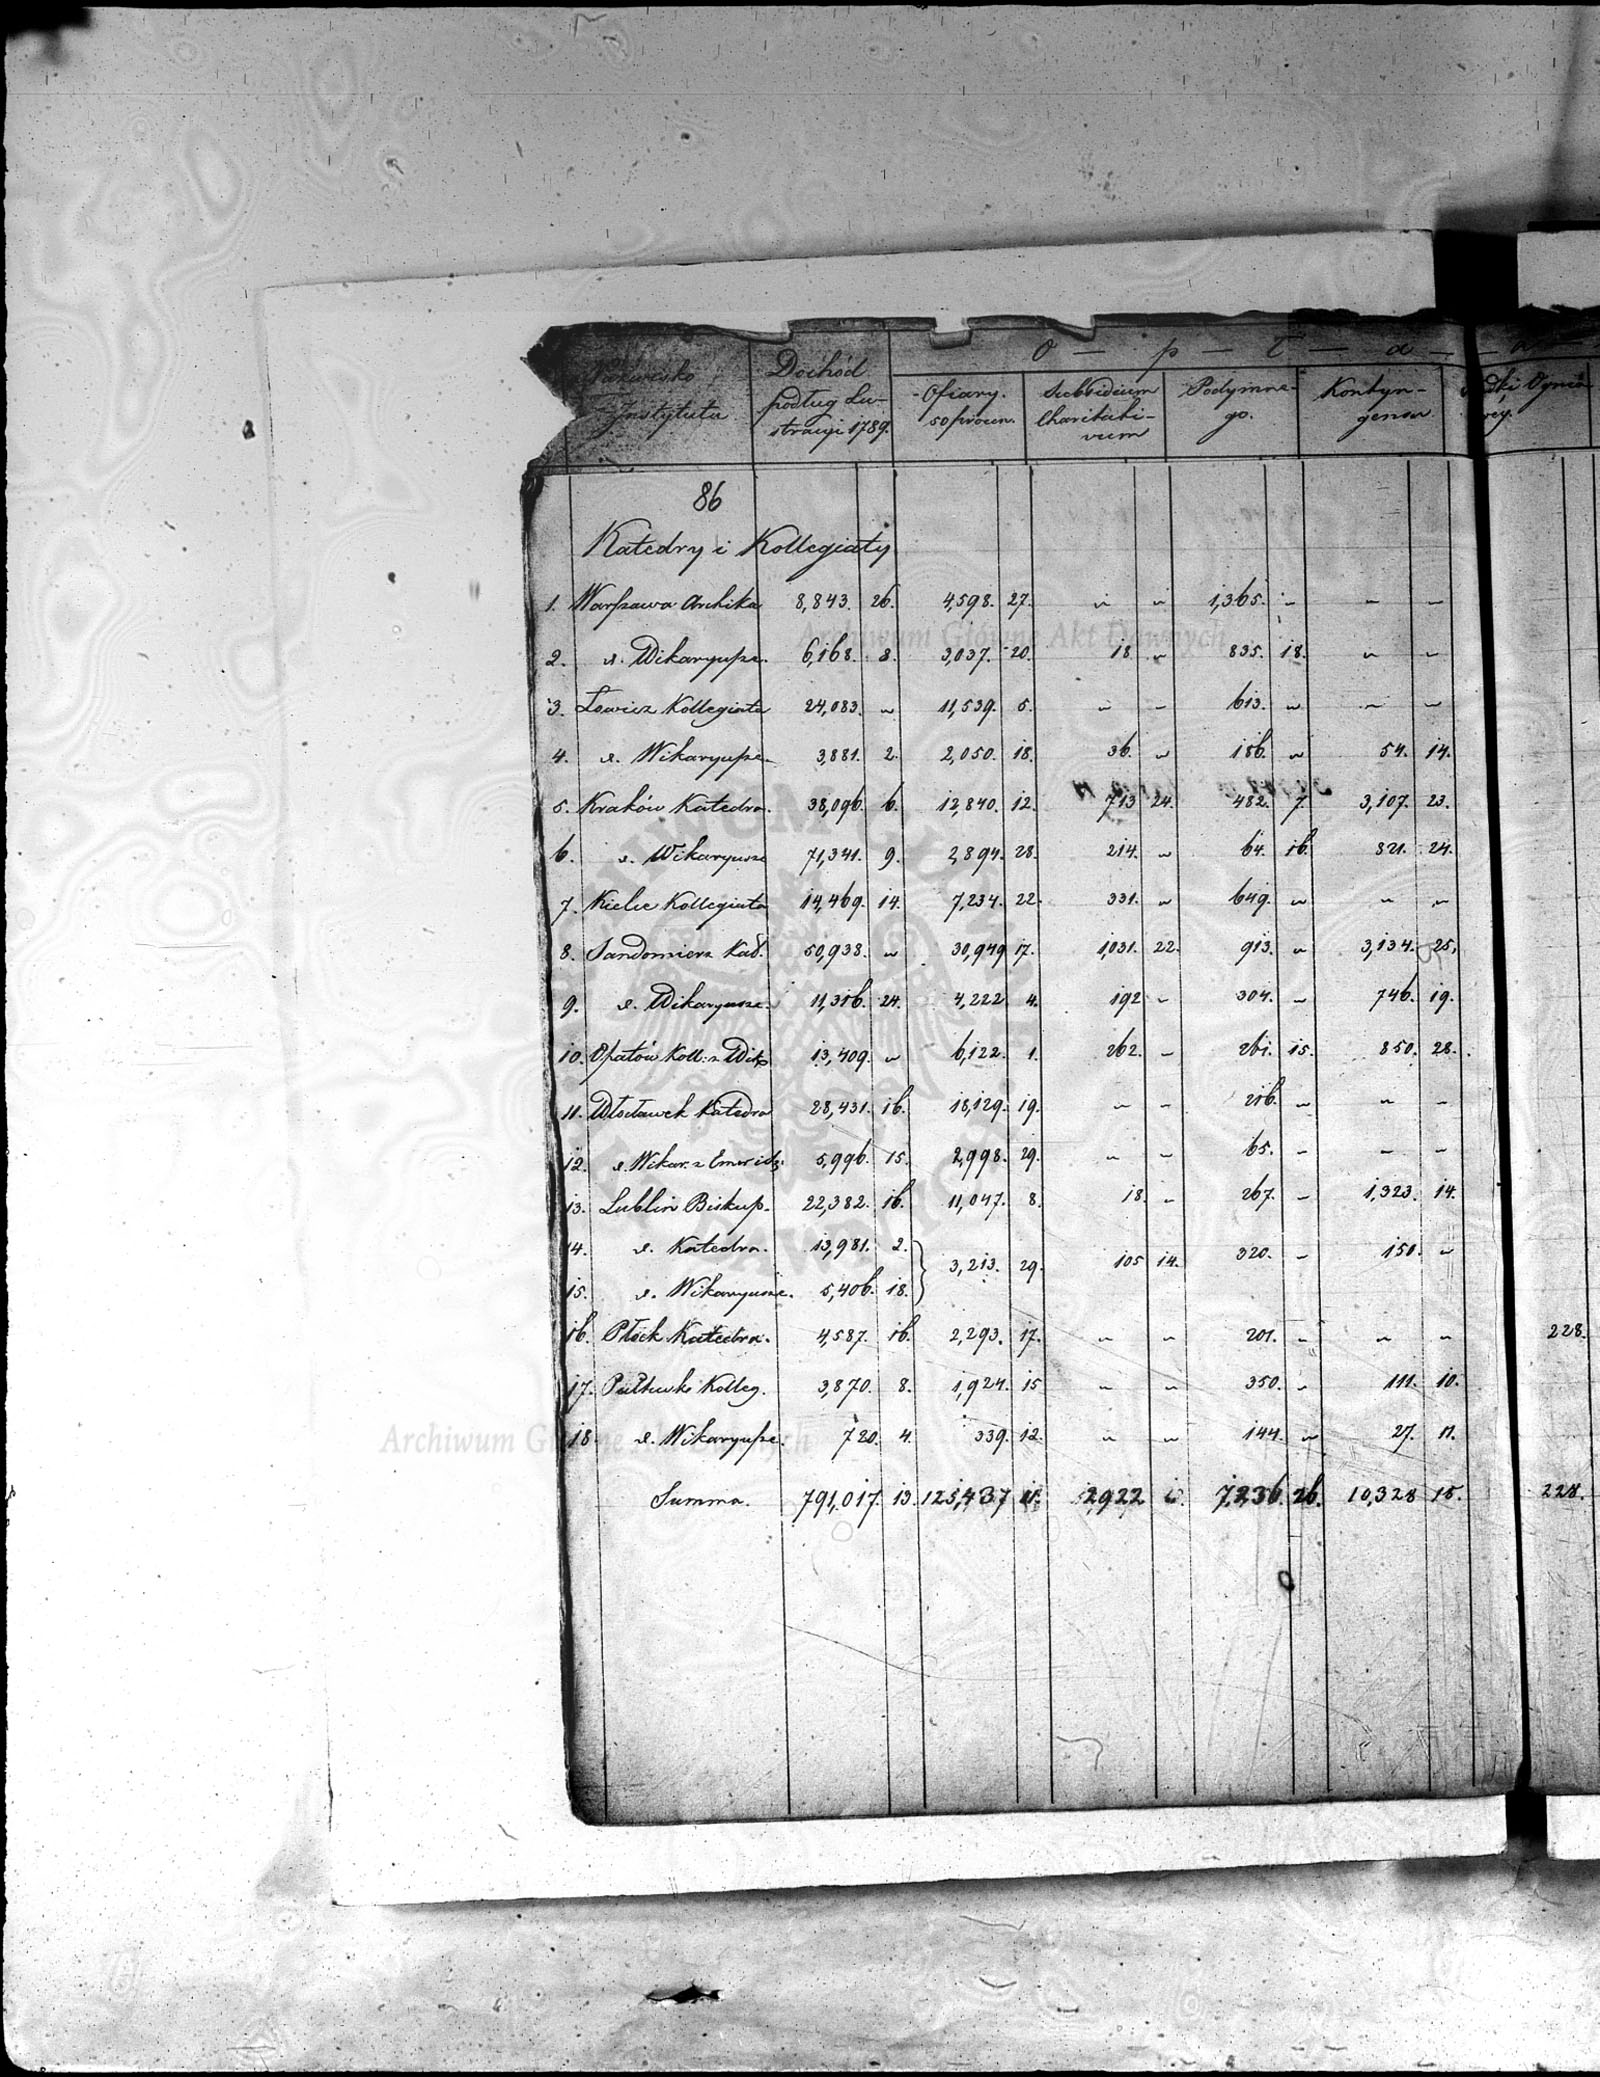 O — p — ł — a — a
Nazwisko Instytutu | Dochód podług Lustracyi 1789. | Ofiary 50 procen. | Subsidium Charitativum | Podymnego. | Kontyngensu | Ognia
86
Katedry i Kollegiaty
1. Warszawa Archika | 8,843. 26. | 4,598. 27. | ~ ~ | 1,365. ~ | ~ ~
2. d. Wikaryusze. | 6,168. 8. | 3,037. 20. | 18 ~ | 835. 18. | ~ ~
3. Łowicz Kollegiata | 24,083. ~ | 11,539. 5. | ~ ~ | 613. ~ | ~ ~
4. d. Wikaryusze | 3,881. 2. | 2,050. 18. | 36. ~ | 186. ~ | 54. 14.
5. Kraków Katedra. | 38,096. 6. | 12,840. 12. | 713 24. | 482. 7. | 3,107. 23.
6. d. Wikaryusze | 71,341. 9. | 2,894. 28. | 214. ~ | 64. 16. | 821. 24.
7. Kielce Kollegiata | 14,469. 14. | 7,234. 22. | 331. ~ | 649. ~ | ~ ~
8. Sandomierz Kad. | 50,938. ~ | 30,949 17. | 1,031. 22. | 913. ~ | 3,134. 25.
9. d. Wikaryusze. | 11,316. 24. | 4,222 4. | 192 ~ | 304. ~ | 746. 19.
10. Opatów Koll: z Wik | 13,409. ~ | 6,122. 1. | 262. ~ | 261. 15. | 850. 28.
11. Włocławek Katedra | 28,431. 16. | 18,129. 19. | ~ ~ | 216. ~ | ~ ~
12. d. Wikar. z Emer | 5,996. 15. | 2,998. 29. | ~ ~ | 65. ~ | ~ ~
13. Lublin Biskup. | 22,382. 16. | 11,047. 8. | 18 ~ | 267. ~ | 1,323. 14.
14. d. Katedra. | 13,981. 2. | 3,213. 29. | 105 14. | 320. ~ | 150. ~
15. d. Wikaryusze. | 5,406. 18.
16. Płock Katedra. | 4,587. 16. | 2,293. 17. | ~ ~ | 201. ~ | ~ ~ | 228.
17. Pułtusk Kolleg. | 3,870. 8. | 1,924. 15 | ~ ~ | 350. ~ | 111. 10.
18. d. Wikaryusze. | 720. 4. | 339. 12. | ~ ~ | 144. ~ | 27. 11.
Summa. | 791,017. 13. | 125,437 11. | 2,922 6. | 7,236. 26. | 10,328 15. | 228.
Archiwum Główne Akt Dawnych
Archiwum Główne Akt Dawnych